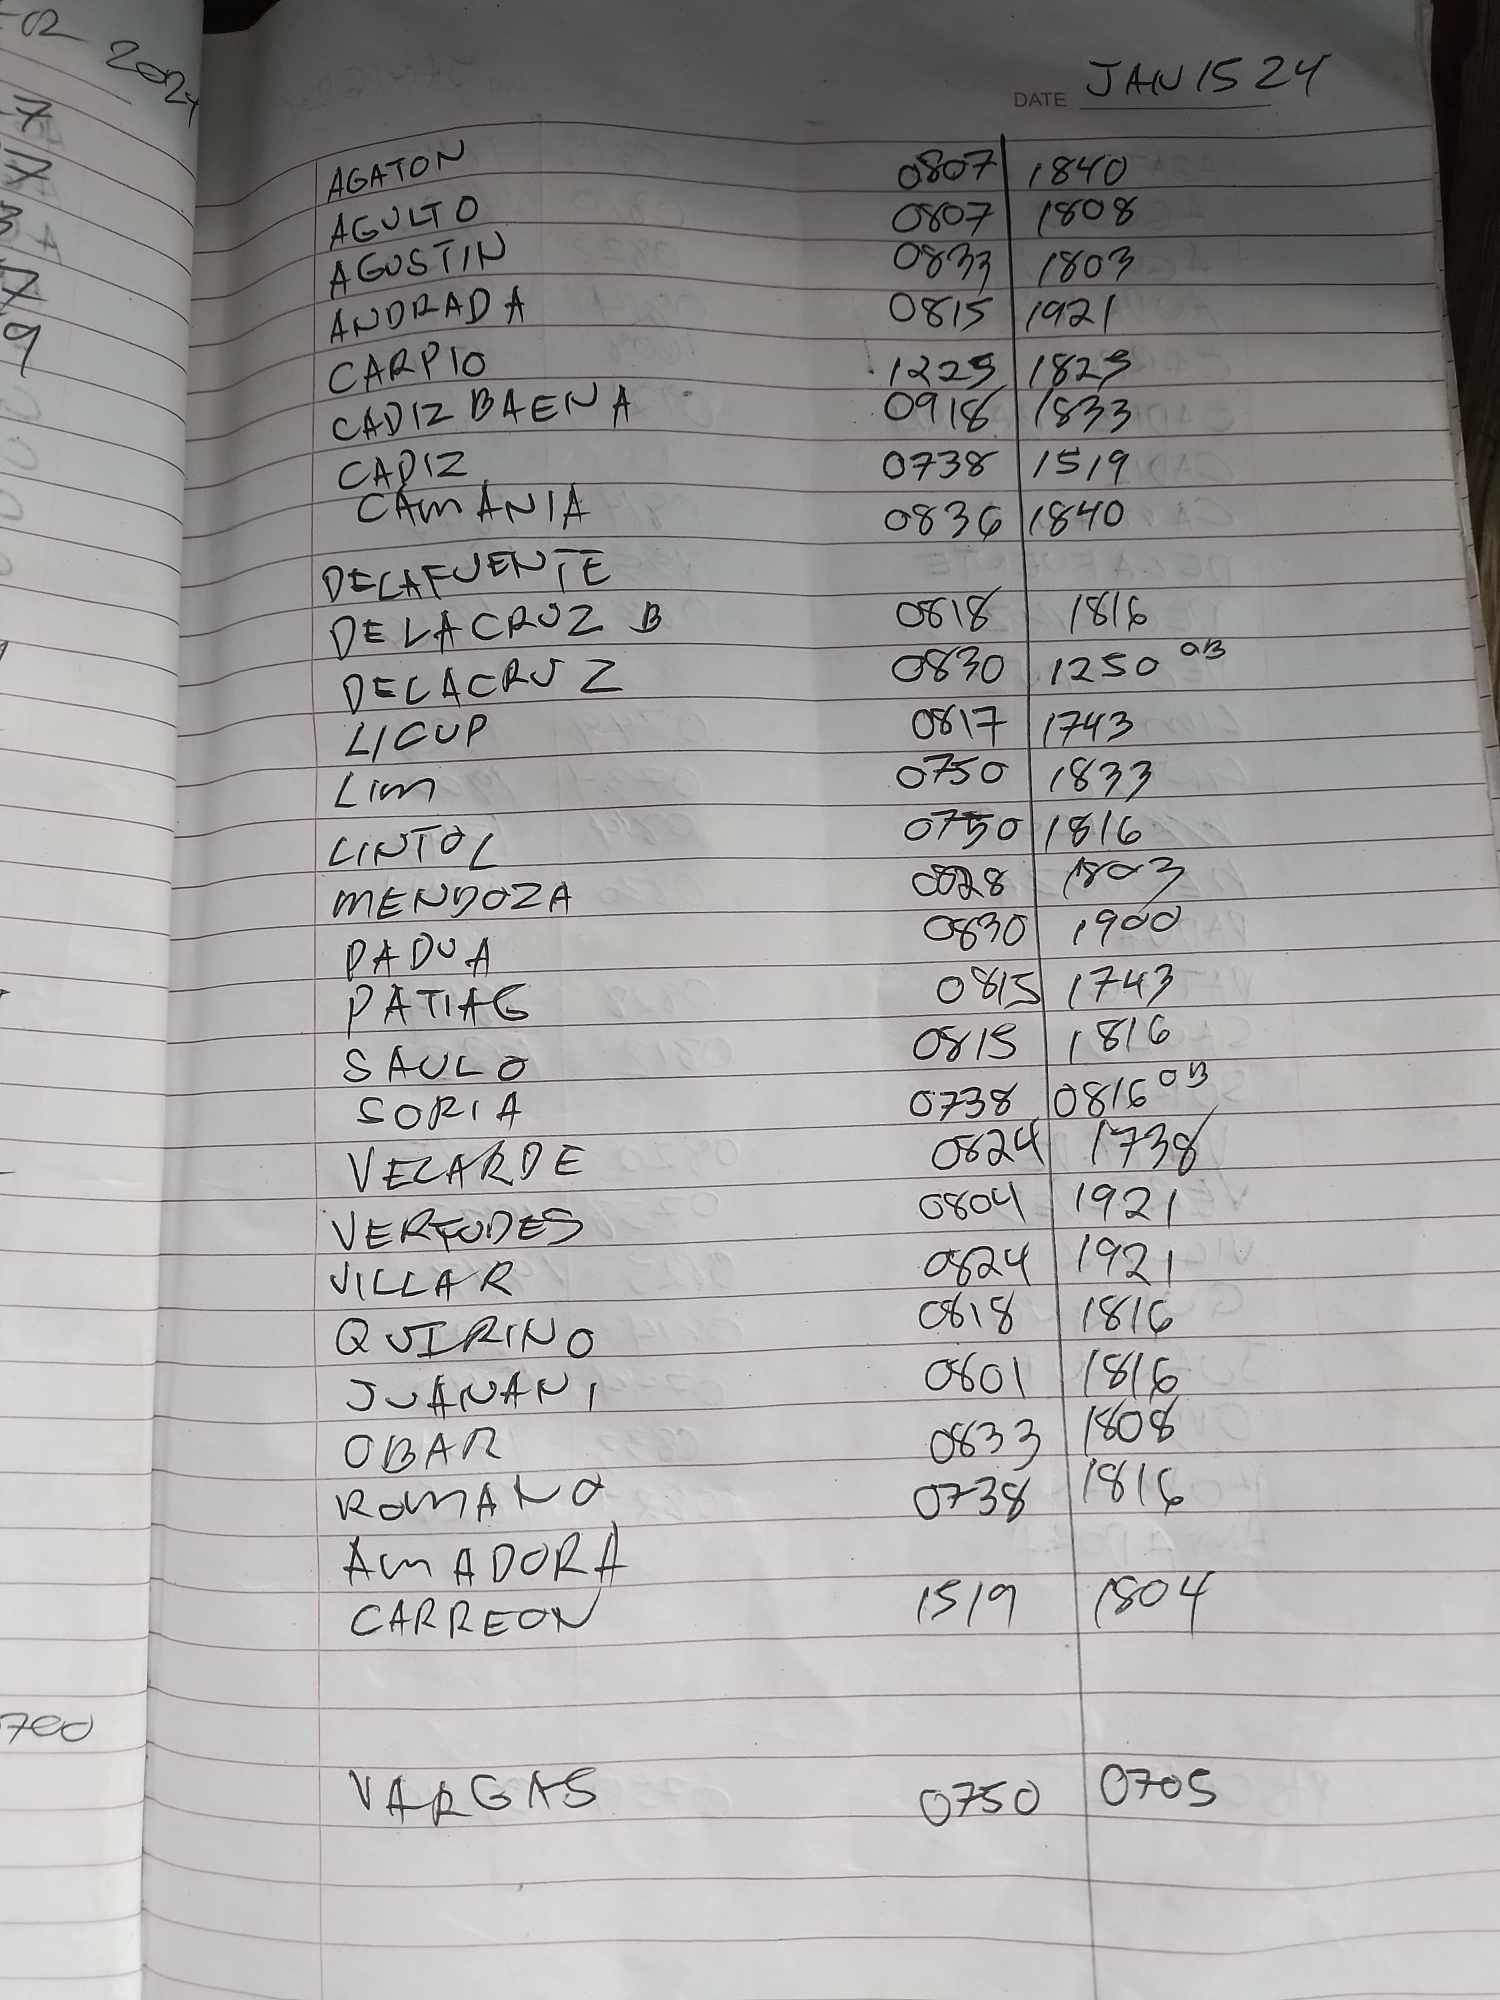 DATE JAN 15 24
AGATON 0807 1840
AGULTO 0807 1808
AGUSTIN 0833 1803
ANDRADA 0815 1921
CARPIO 1225 1825
CADIZ BAENA 0918 1833
CADIZ 0738 1519
CAMANIA 0836 1840
DELAFUENTE
DELACRUZ B 0818 1816
DELACRUZ 0830 1250 OB
LICUP 0817 1743
LIM 0750 1833
LINTOL 0750 1816
MENDOZA 0828 1803
PADUA 0830 1900
PATIAG 0815 1743
SAULO 0815 1816
SORIA 0738 0816 OB
VELARDE 0824 1738
VERTUDES 0804 1921
VILLAR 0824 1921
QUIRINO 0818 1816
JUANANI 0801 1816
OBAR 0833 1808
ROMANO 0738 1816
AMADORA
CARREON 1519 1804
VARGAS 0750 0705